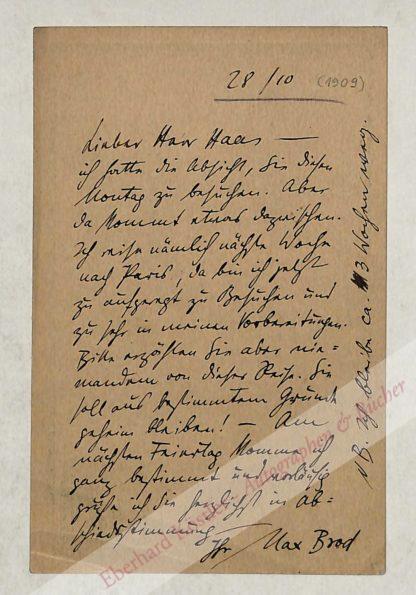 28/10 (1909)
Lieber Herr Haas —
ich hatte die Absicht, Sie diesen
Montag zu besuchen. Aber
da kommt etwas dazwischen.
Ich reise nämlich nächste Woche
nach Paris, da bin ich jetzt
zu aufgeregt zu Besuchen und
zu sehr in meinen Vorbereitungen.
Bitte erzählen Sie aber nie=
mandem von dieser Reise. Sie
soll aus bestimmtem Grunde
geheim bleiben! — Am
nächsten Feiertag komme ich
ganz bestimmt und vorläufig
grüße ich Sie herzlichst in Ab=
schiedsstimmung
Ihr Max Brod
NB. Ich bleibe ca. 3 Wochen weg.
Eberhard Autographen & Bücher